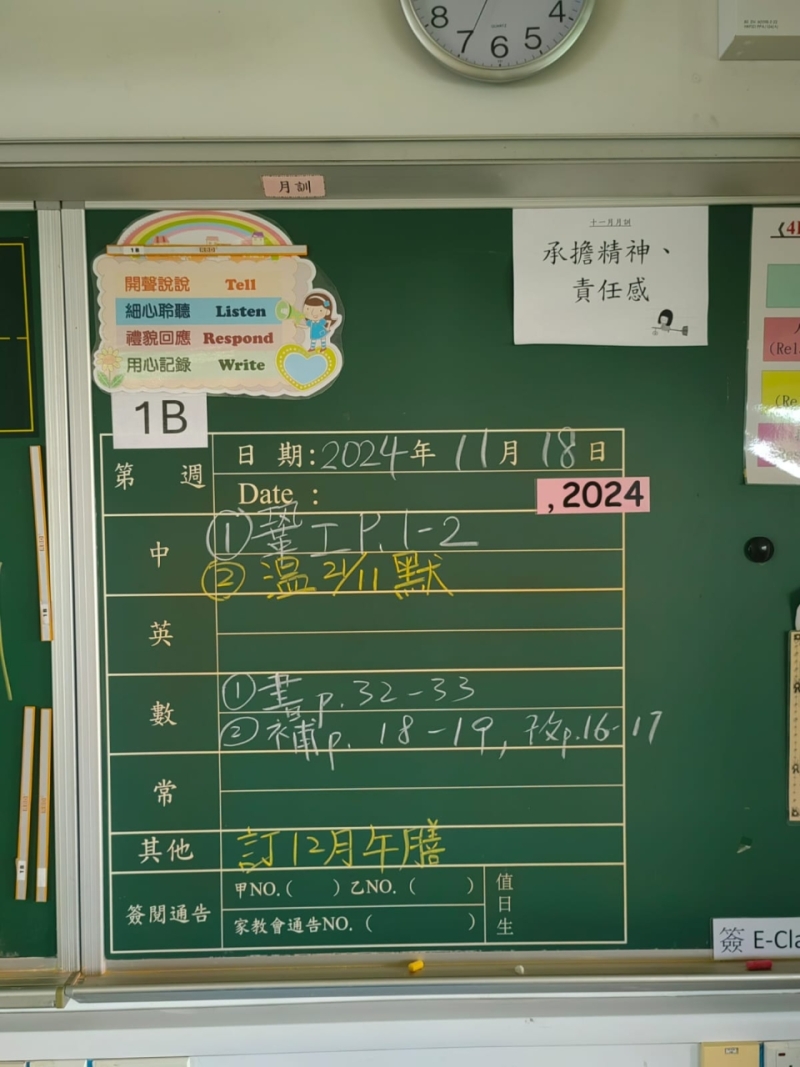 8 7 6 5 4
QUARTZ
月訓
開聲說說 Tell
細心聆聽 Listen
禮貌回應 Respond
用心記錄 Write
1B
十一月月訓
承擔精神、
責任感
第 週 日 期:2024年 11月 18日
Date : , 2024
中 ①鞏工P.1-2
②溫21/11默
英
數 ①書p.32-33
②補p.18-19, 改p.16-17
常
其他 訂12月午膳
簽閱通告 甲NO.( ) 乙NO.( ) 值日生
家教會通告NO.( )
簽 E-Cla